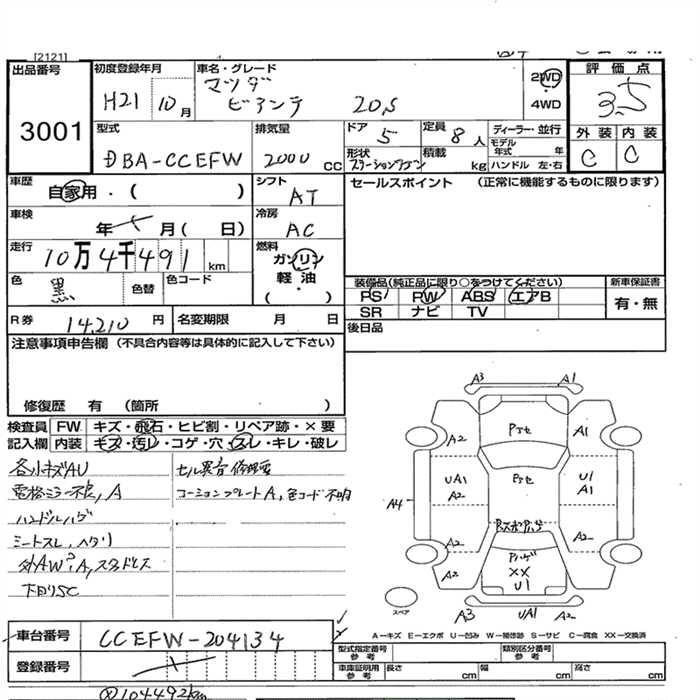 [2121]
出品番号
3001
初度登録年月
H21 10月
車名・グレード
マツダ
ビアンテ 20S
2WD
・
4WD
評価点
3.5
外装 内装
C C
型式
DBA-CCEFW
排気量
2000 cc
ドア 5
定員 8人
形状
ステーションワゴン
積載 kg
ディーラー・並行
モデル年式 年
ハンドル 左・右
車歴
自家用・( )
シフト
AT
セールスポイント (正常に機能するものに限ります)
車検
年 月( 日)
冷房
AC
走行
10万4千491km
燃料
ガソリン
軽・油
( ・ )
色
黒
色替
色コード
装備品(純正品に限り○をつけてください)
PS PW ABS エアB
SR ナビ TV
新車保証書
有・無
R券 14,210円
名変期限 月 日
後日品
注意事項申告欄 (不具合内容等は具体的に記入して下さい)
修復歴 有 (箇所 )
検査員 FW キズ・飛石・ヒビ割・リペア跡・×要
記入欄 内装 キズ・汚レ・コゲ・穴・スレ・キレ・破レ
各小キズAU
電格ミラー不良,A
ハンドルハゲ
シートスレ,ヘタリ
外AW,A,スタッドレス
下回りSC
セル異音修理要
コーションプレートA,色コード不明
A3 A1
A2 Pトセ A1
A4 UA1 A2 Pトセ U1 A1
A2 A2
Pハゲ
××
U1
A2
スペア
A3 UA1 A2
A-キズ E-エクボ U-凹み W-補修跡 S-サビ C-腐食 XX-交換済
車台番号 CCEFW-204134
登録番号
型式指定番号参考
類別区分番号参考
車庫証明用参考 長さ cm 幅 cm 高さ cm
104492km